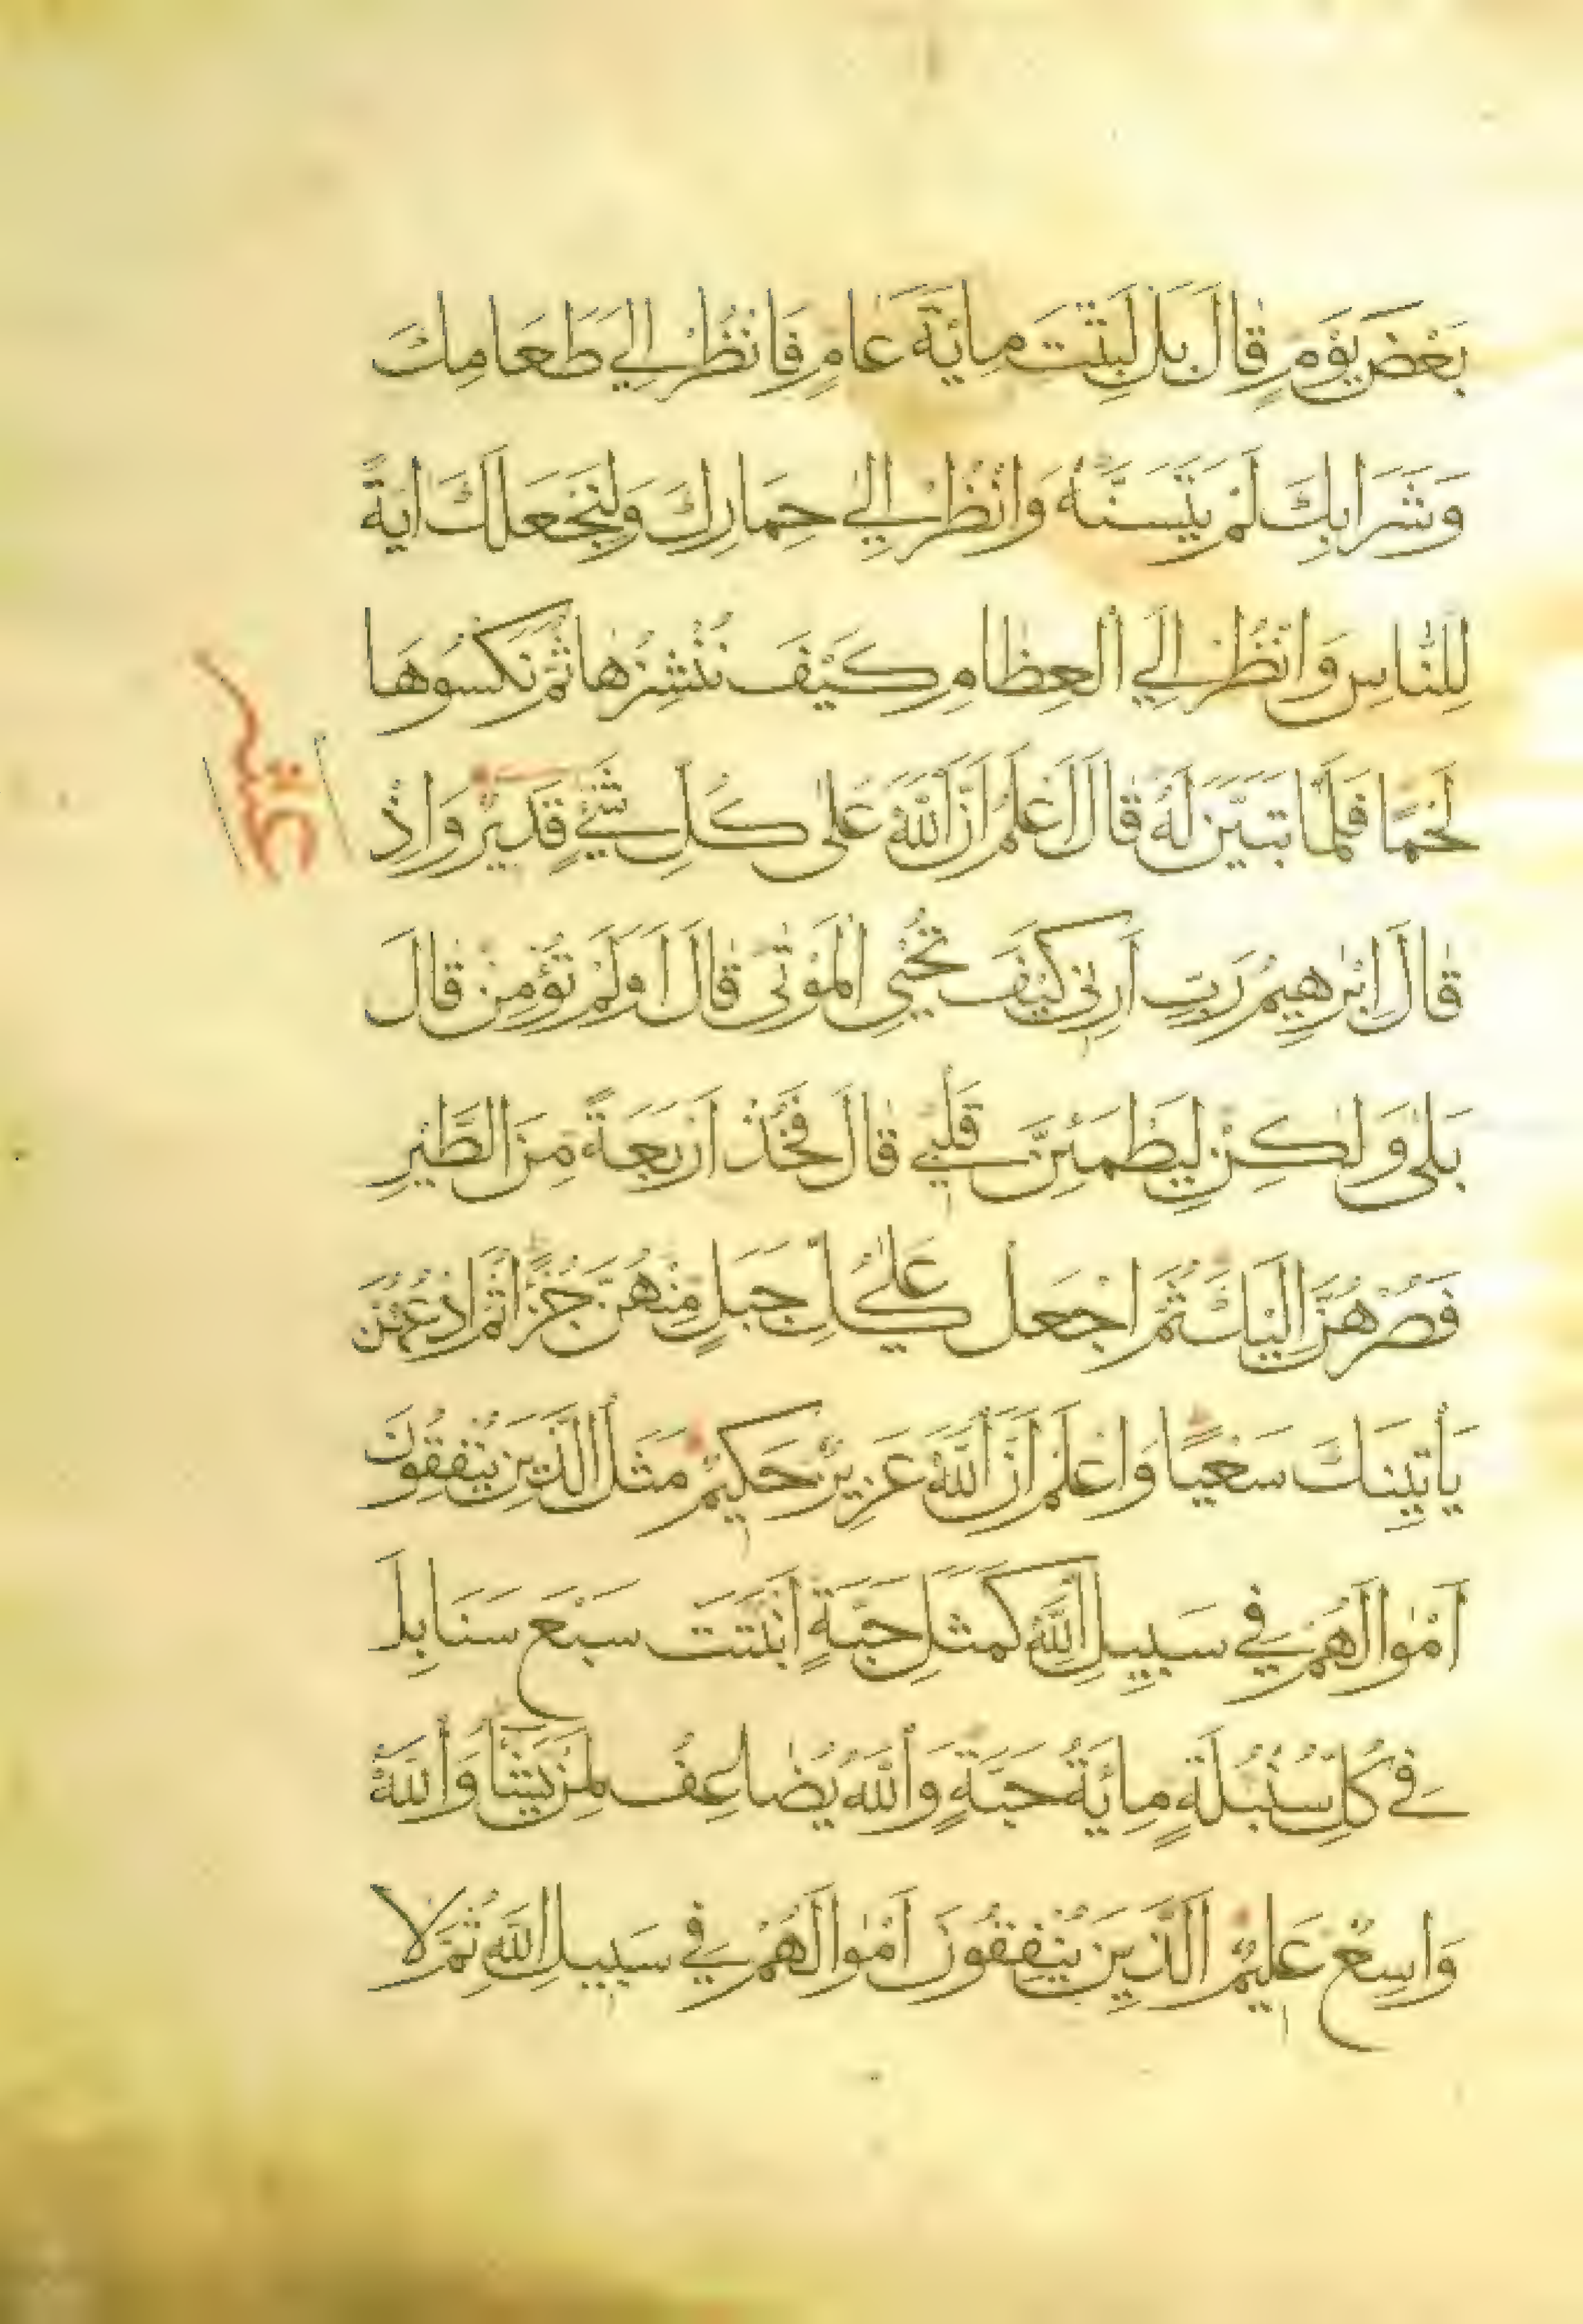 بَعْضَ يَوْمٍ قَالَ بَل لَبِثْتَ مِائَةَ عَامٍ فَانْظُرْ اِلَي طَعَامِكَ
وَشَرَابِكَ لَمْ يَتَسَنَّهْ وَانْظُرْ اِلٰي حِمَارِكَ وَلِنَجْعَلَكَ اٰيَةً
لِلنَّاسِ وَانْظُرْ اِلَي الْعِظَامِ كَيْفَ نُنْشِزُهَا ثُمَّ نَكْسُوهَا
لَحْمًا فَلَمَّا تَبَيَّنَ لَهُ قَالَ اَعْلَمُ اَنَّ اللّٰهَ عَلٰى كُلِّ شَيْءٍ قَدِيْرٌ وَاِذْ
قَالَ اِبْرٰهِيمُ رَبِّ اَرِنِى كَيْفَ تُحْيِي الْمَوْتٰى قَالَ اَوَلَمْ تُؤْمِنْ قَالَ
بَلٰى وَلٰكِنْ لِيَطْمَئِنَّ قَلْبِي قَالَ فَخُذْ اَرْبَعَةً مِنَ الطَّيْرِ
فَصُرْهُنَّ اِلَيْكَ ثُمَّ اجْعَلْ عَلٰى كُلِّ جَبَلٍ مِنْهُنَّ جُزْءًا ثُمَّ ادْعُهُنَّ
يَأْتِينَكَ سَعْيًا وَاعْلَمْ اَنَّ اللّٰهَ عَزِيزٌ حَكِيمٌ مَثَلُ الَّذِينَ يُنْفِقُونَ
اَمْوَالَهُمْ فِي سَبِيلِ اللّٰهِ كَمَثَلِ حَبَّةٍ اَنْبَتَتْ سَبْعَ سَنَابِلَ
فِي كُلِّ سُنْبُلَةٍ مِائَةُ حَبَّةٍ وَاللّٰهُ يُضَاعِفُ لِمَنْ يَشَاءُ وَاللّٰهُ
وَاسِعٌ عَلِيمٌ الَّذِينَ يُنْفِقُونَ اَمْوَالَهُمْ فِي سَبِيلِ اللّٰهِ ثُمَّ لَا